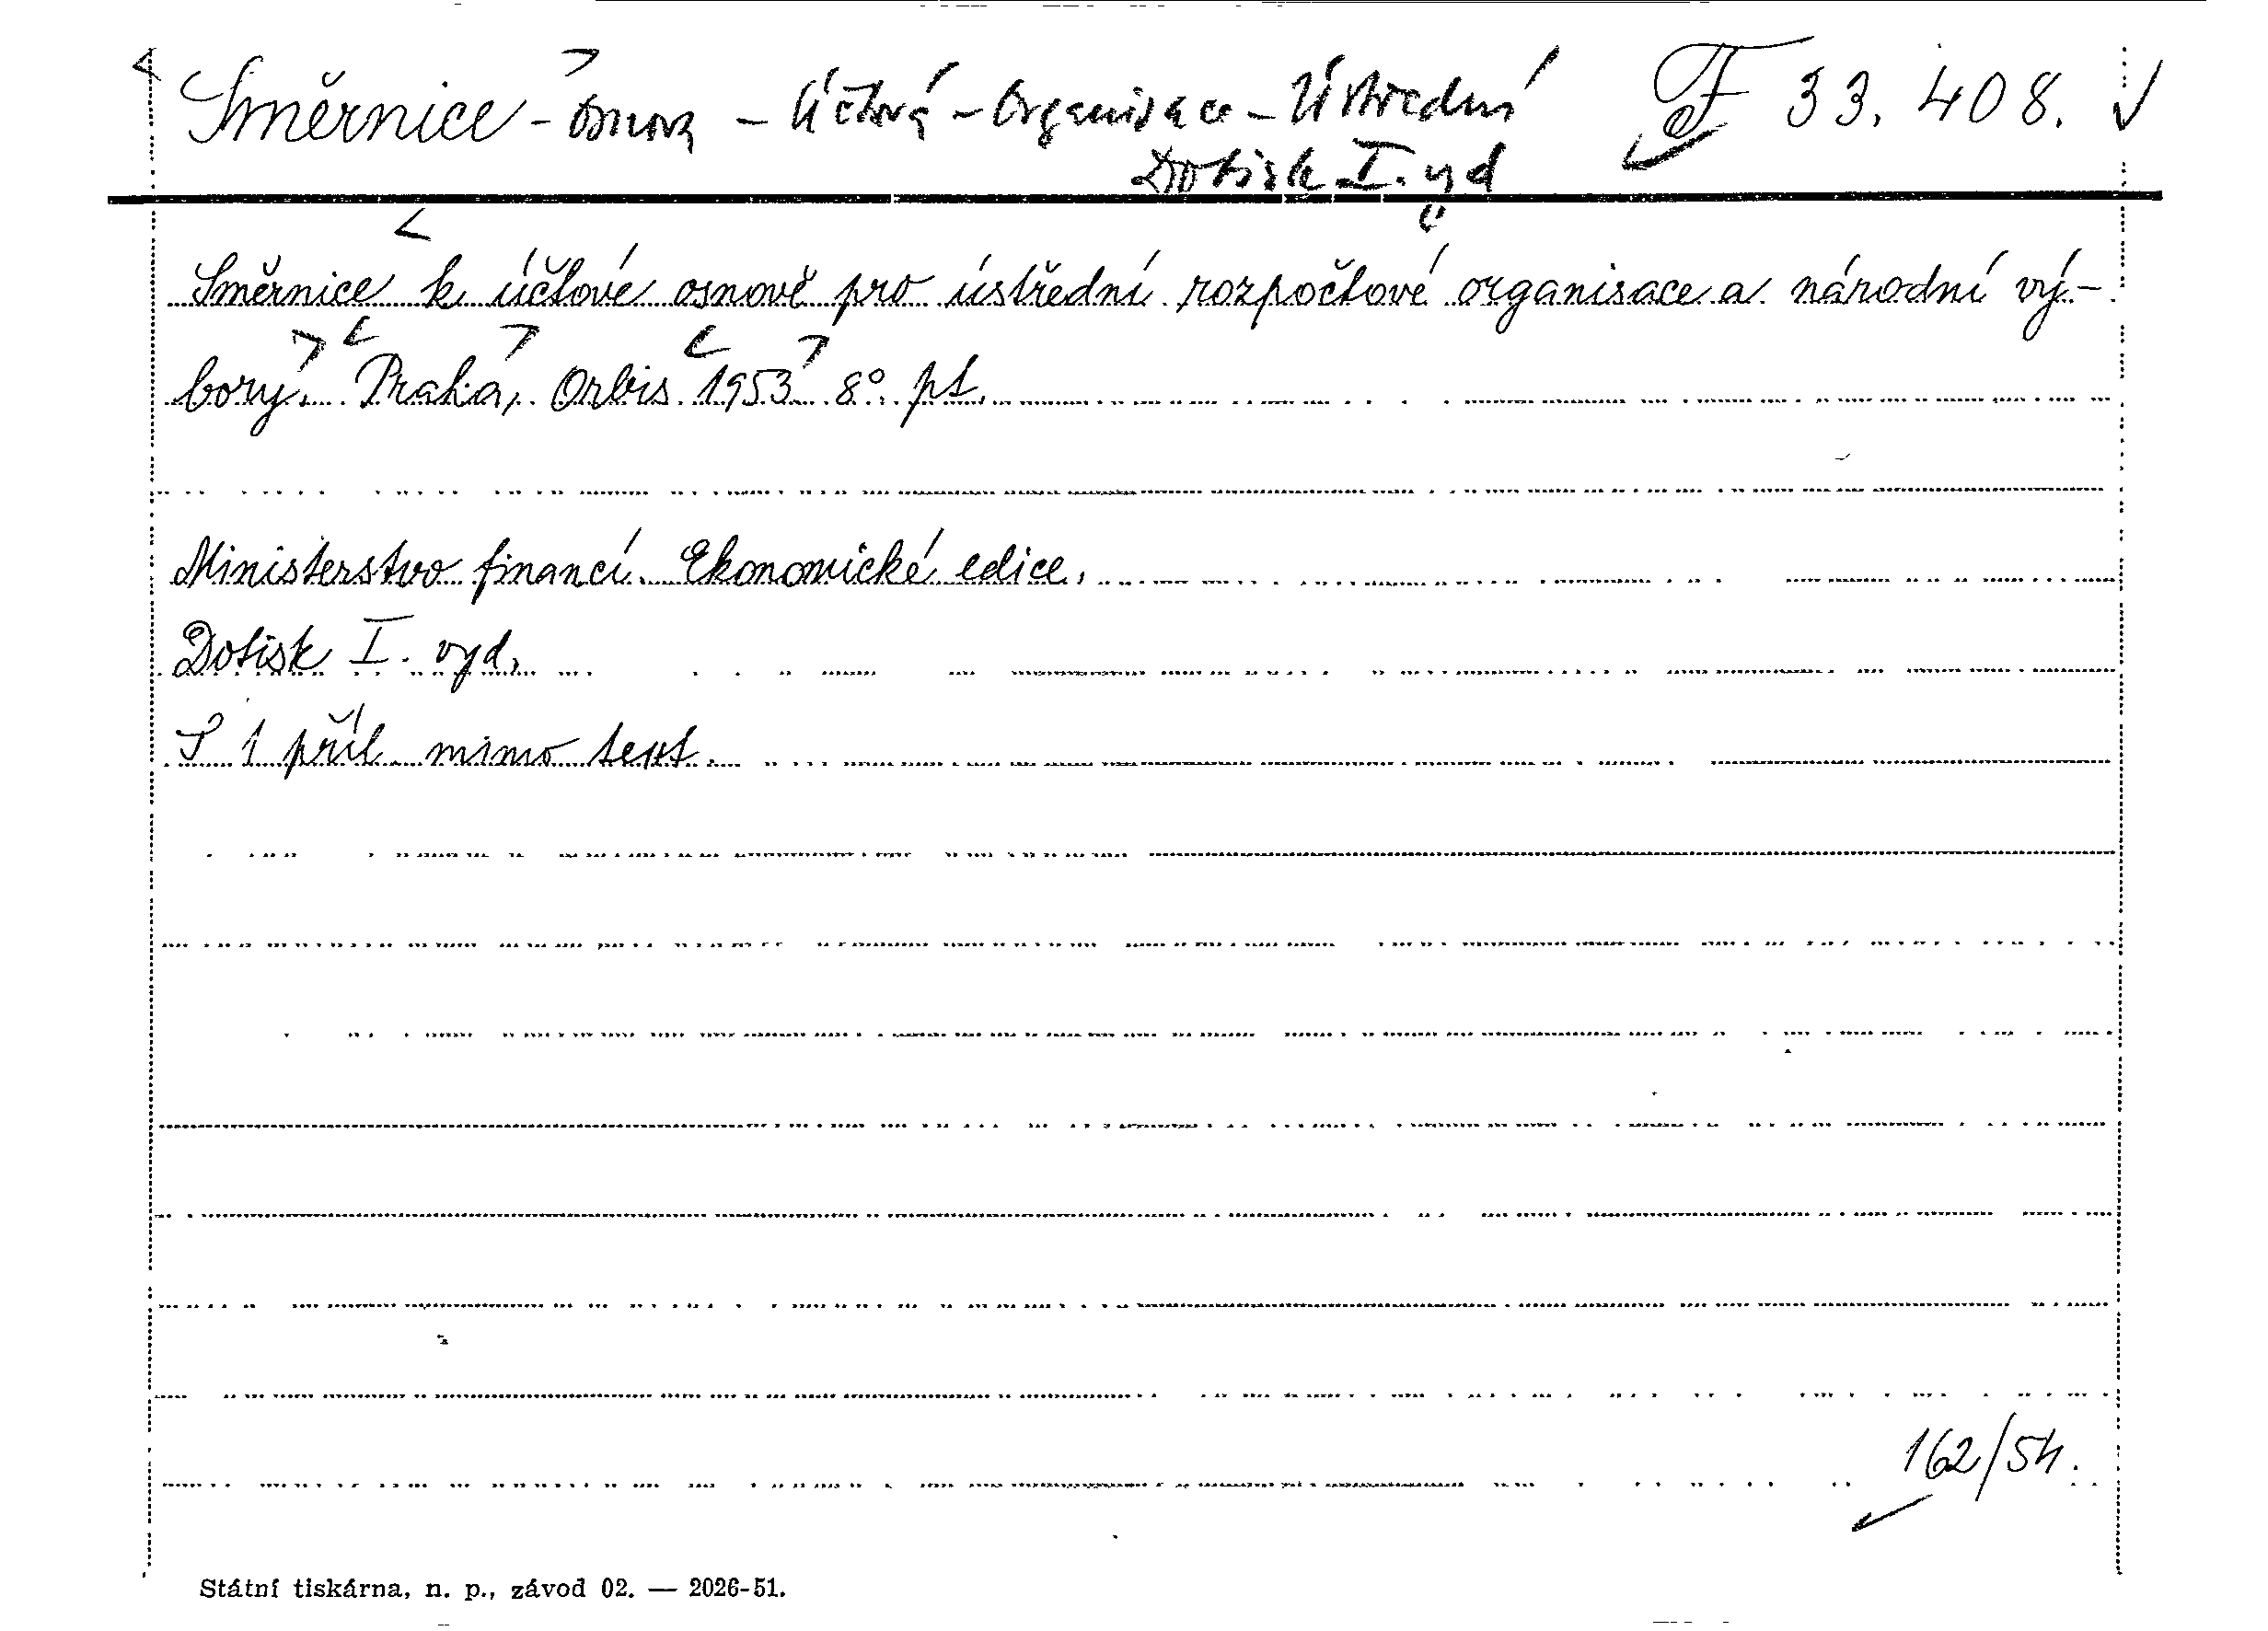 Směrnice - osnova - Účtová - Organisace - Ústřední F 33.408.
Dotisk I. vyd
Směrnice k účtové osnově pro ústřední rozpočtové organisace a národní vý-
bory. Praha, Orbis 1953 8° pt.
Ministerstvo financí. Ekonomické edice.
Dotisk I. vyd.
S 1 příl. mimo text.
162/54.
Státní tiskárna, n. p., závod 02. — 2026-51.